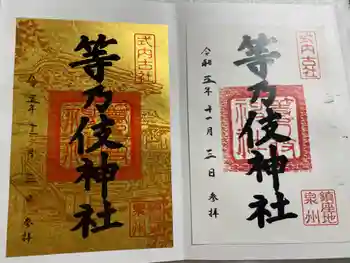 式内古社
等乃伎神社
令和五年十一月三日
参拝
鎮座地
泉州
式内古社
等乃伎神社
令和五年十一月三日
参拝
鎮座地
泉州